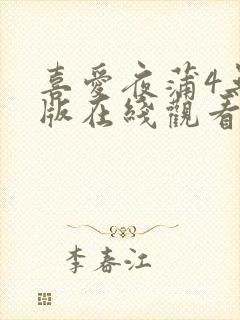 喜愛夜蒲4
版在綫觀看
李春江